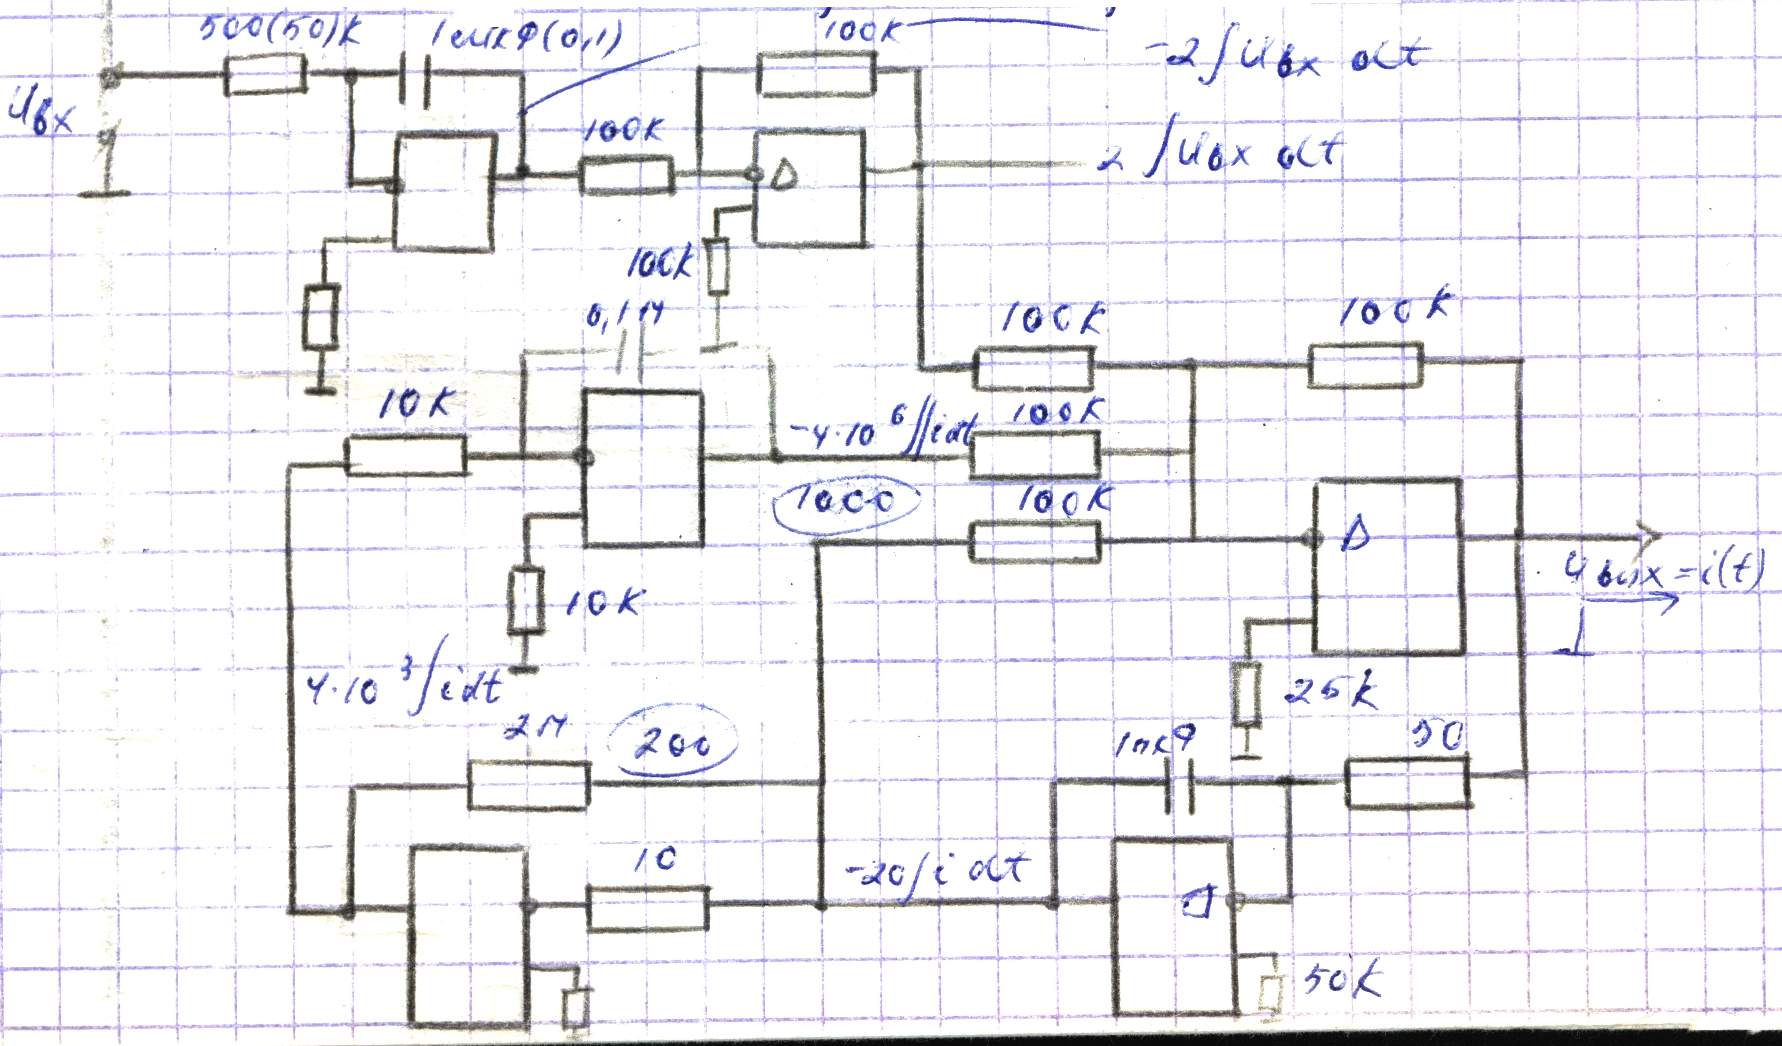 500(50)К
1мкФ(0,1)
100К
-2∫Uвх dt
Uвх
100К
Δ
2∫Uвх dt
100К
0,1М
100К
100К
10К
-4·10⁶∬idt
100К
1000
100К
Δ
10К
Uвых=i(t)
4·10³∫idt
25К
2М
200
1мкФ
50
10
-20∫i dt
50К